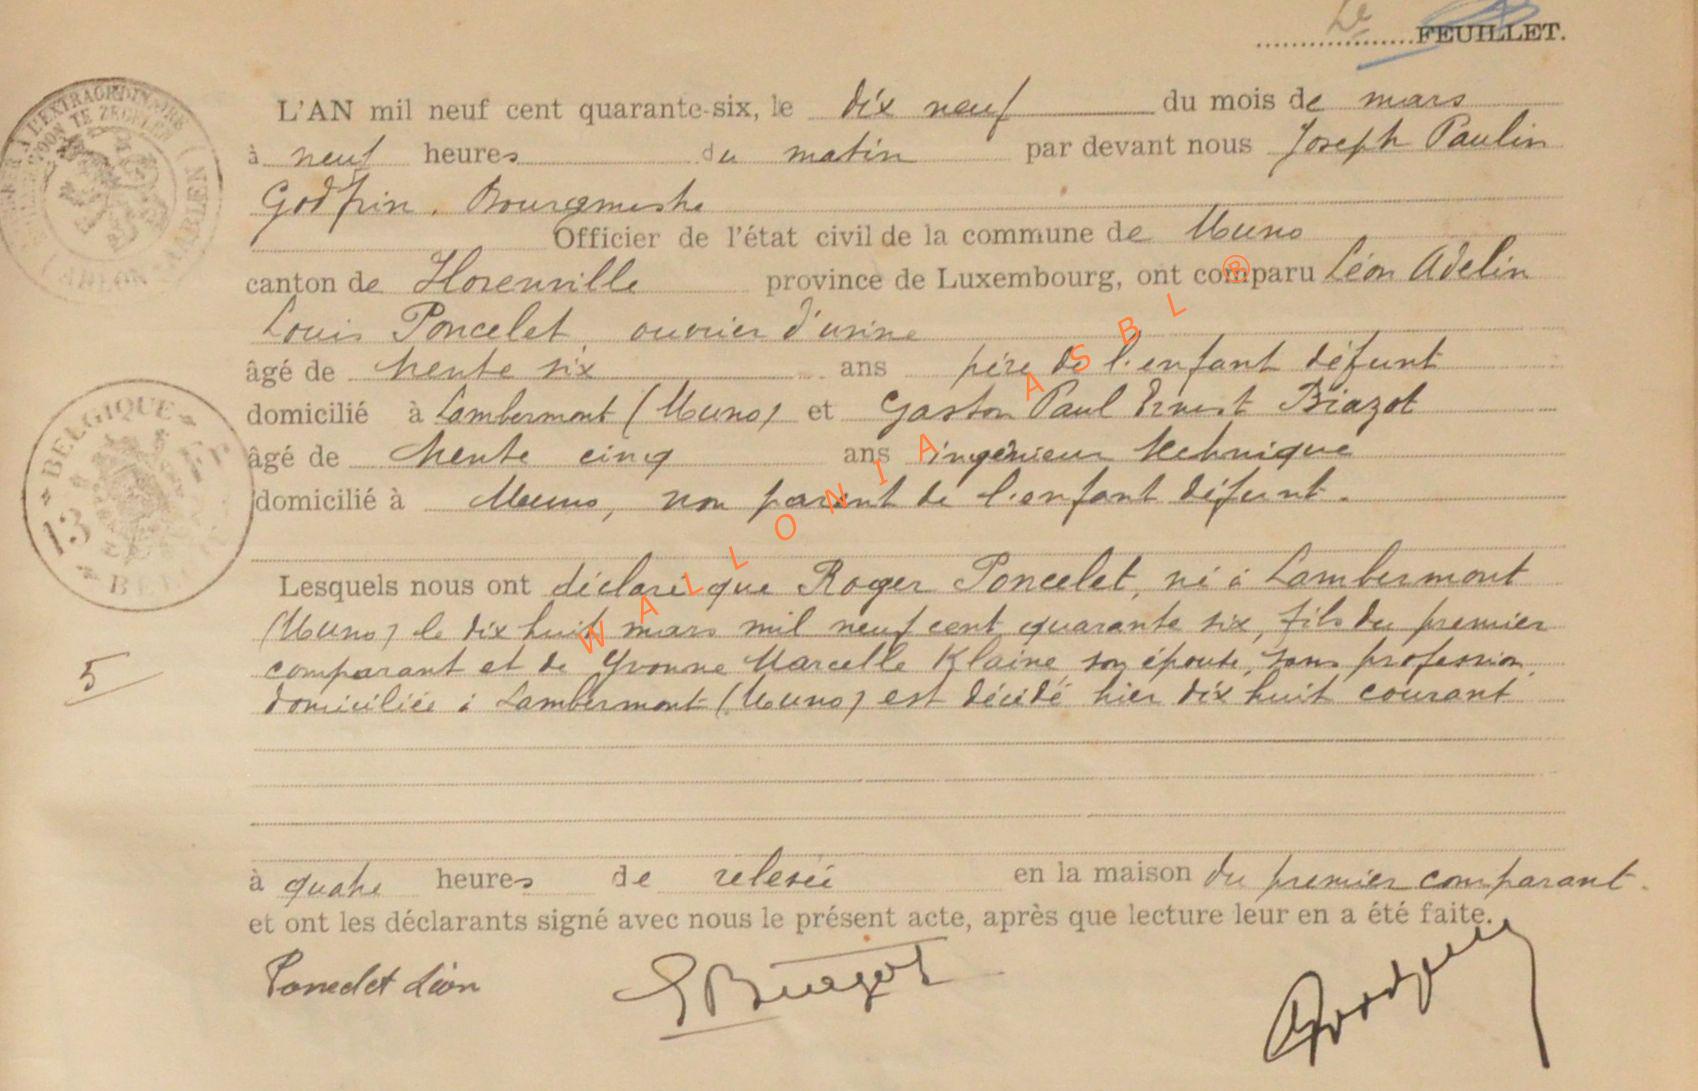 FEUILLET.
L'AN mil neuf cent quarante-six, le dix neuf du mois de mars
à neuf heures du matin par devant nous Joseph Paulin
Godfrin, Bourgmestre
Officier de l'état civil de la commune de Muno
canton de Florenville province de Luxembourg, ont comparu Léon Adelin
Louis Poncelet, ouvrier d'usine
âgé de trente six ans père de l'enfant défunt
domicilié à Lambermont (Muno) et Gaston Paul Ernest Biazot
âgé de trente cinq ans ingénieur technique
domicilié à Muno, non parent de l'enfant défunt.
Lesquels nous ont déclaré que Roger Poncelet, né à Lambermont
(Muno) le dix huit mars mil neuf cent quarante six, fils du premier
5
comparant et de Yvonne Marcelle Klaine, son épouse, sans profession,
domiciliée à Lambermont (Muno) est décédé hier dix huit courant
à quatre heures de relevée en la maison du premier comparant.
et ont les déclarants signé avec nous le présent acte, après que lecture leur en a été faite.
Poncelet Léon
BELGIQUE
13
WALLONIA ASBL ®